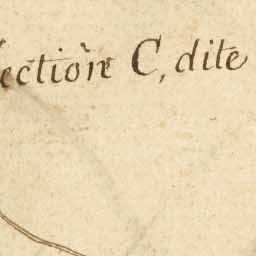 ection C, dite